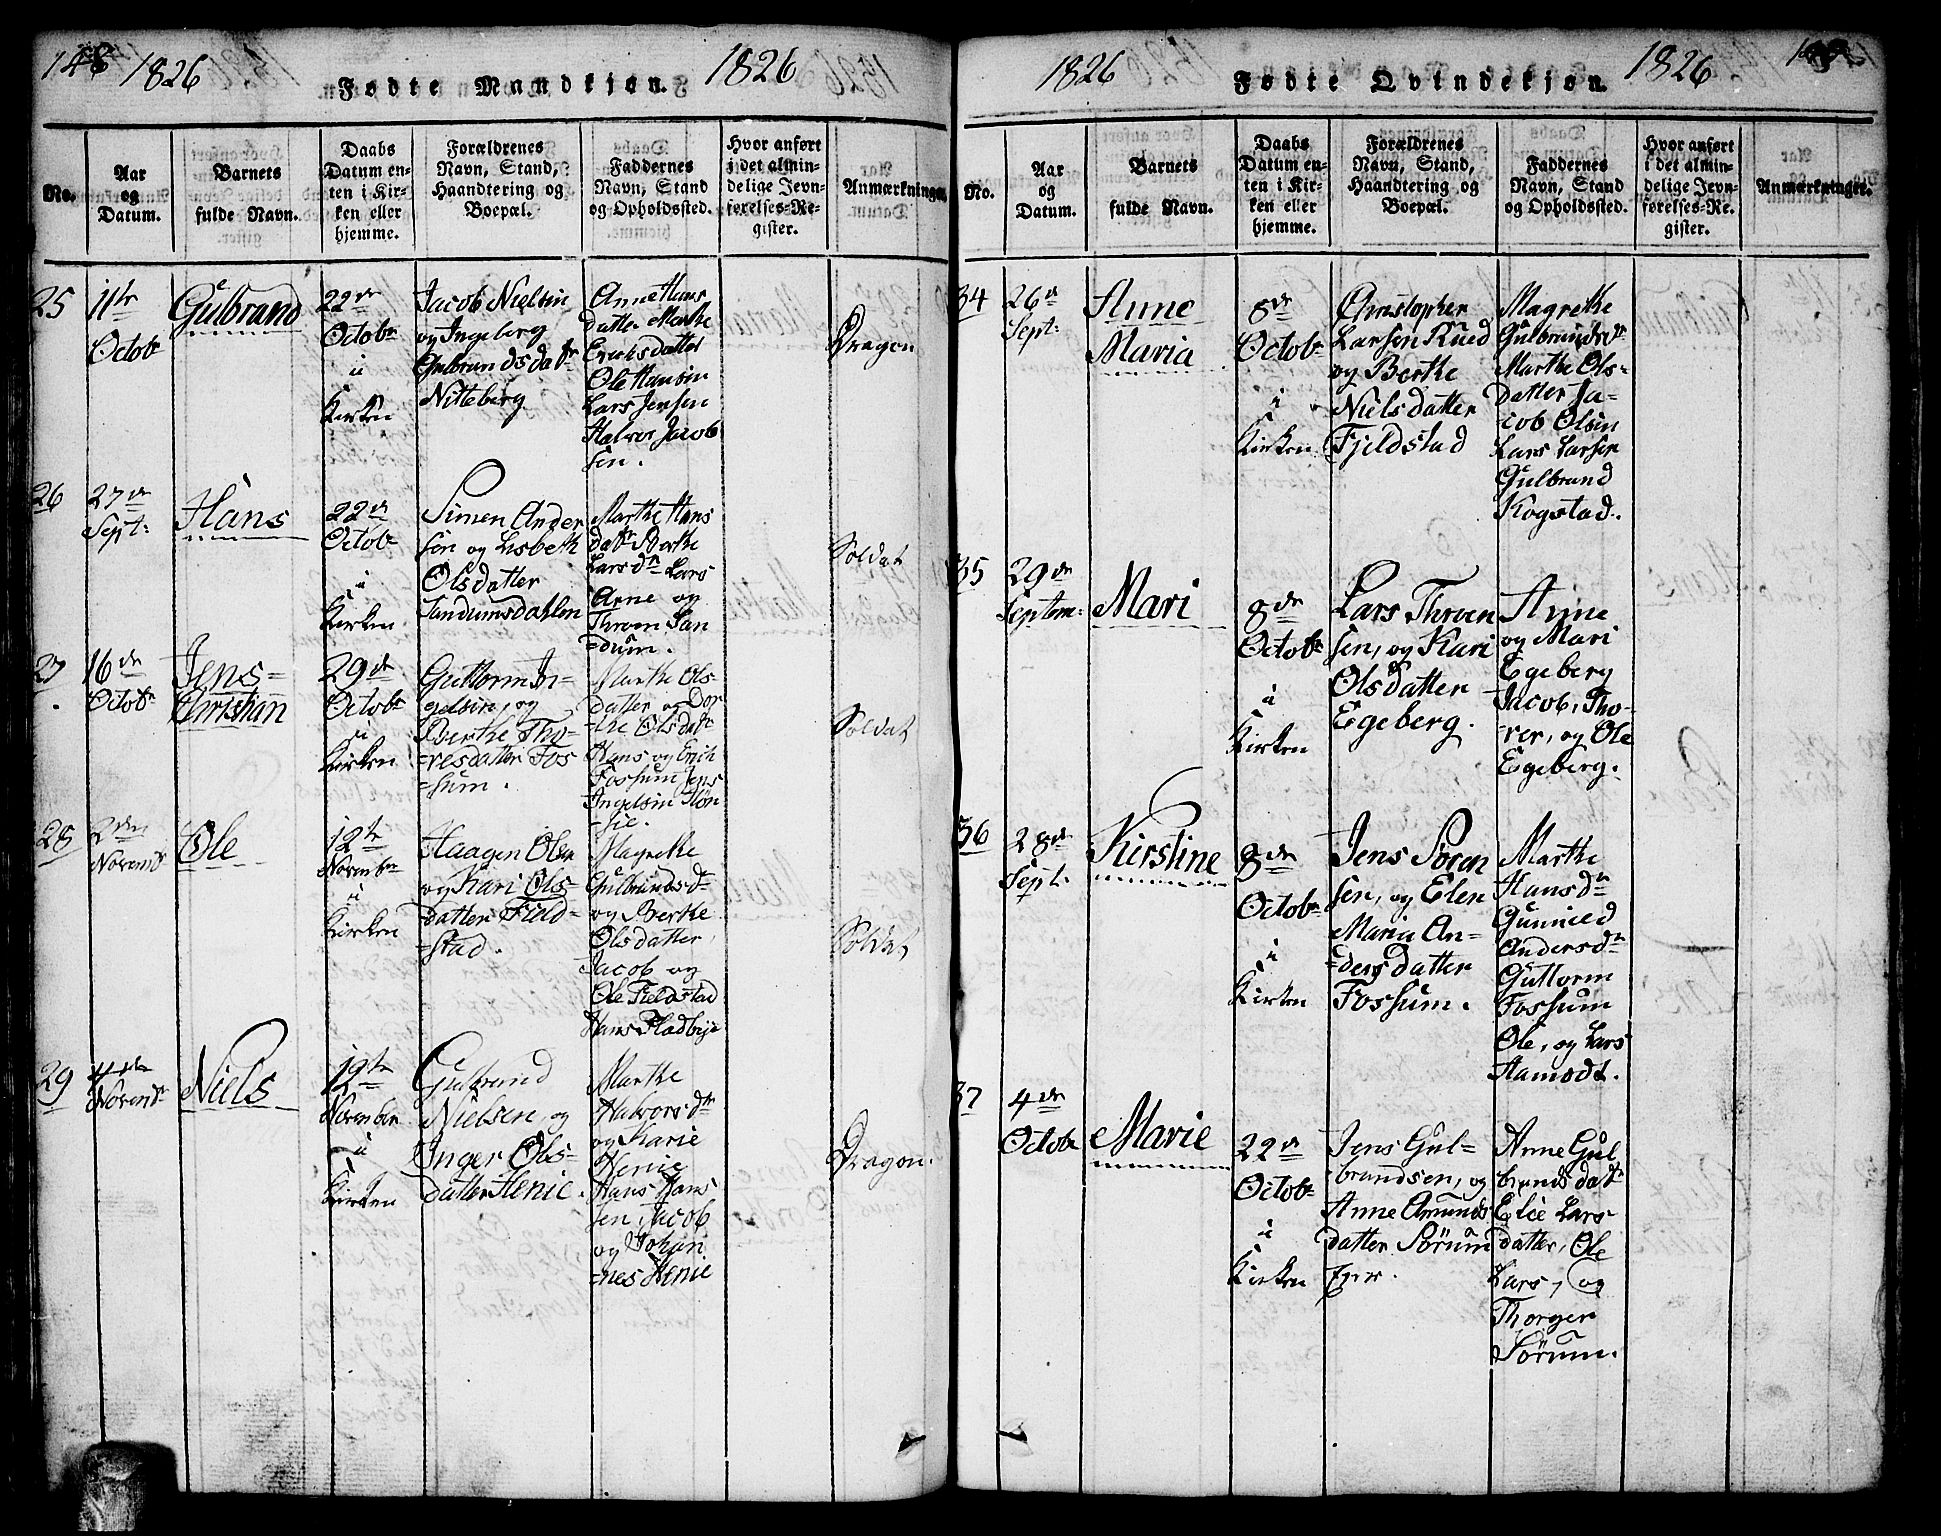 148 1826 Fødte Mandkjøn. 1826
No.
Aar
og
Datum.
Barnets
fulde Navn.
Daabs
Datum en-
ten i Kir-
ken eller
hjemme.
Forældrenes
Navn, Stand,
Haandtering og
Boepæl.
Faddernes
Navn, Stand
og Opholdssted.
Hvor anført
i det almin-
delige Jevn-
førelses-Re-
gister.
Anmærkninger.
25
11te
Octobr
Gulbrand
22de
Octobr
i
Kirken
Jacob Nielsen
og Ingeberg
Gulbrandsdatr
Nitteberg
Anne Hans
datter Marthe
Erichsdatter
Ole Hansen
Lars Jensen
Halvor Jacob
sen.
Dragon
26
27de
Sept:
Hans
22de
Octobr
i
Kirken
Simen Ander
sen og Lisbeth
Olsdatter
Sandumsdahlen
Marthe Hans
datr Berthe
Larsdr Lars
Arne og
Thoren San
=dum.
Soldat
27
16de
Octobr
Jens=
Christian
29de
Octobr
i
Kirken
Guttorm In-
gelsen, og
Berthe Tho-
=resdatter Fos
=sum.
Marthe Ols-
datter og Dor
=the Olsdatr
Hans og Erich
Fossum Jens
Ingelsen Høn
=sie.
Soldat
28
2den
Novembr
Ole
12te
Novembr
i
Kirken
Haagen Olsen
og Kari Ols-
datter Field-
=stad.
Magrethe
Gulbrandsdr
og Berthe
Olsdatter,
Jacob og
Ole Fieldstad
Hans Fladbye
Soldat
29
Novembr
Niels
12te
November
i
Kirken
Gulbrand
Nielsen og
Inger Ols=
datter Henie.
Marthe
Halvorsdtr
og Karie
Henie
Hans Hans
sen, Jacob
og Johan
=nes Henie
Dragon.
1826 Fødte Qvindekjøn. 1826
No.
Aar
og
Datum.
Barnets
fulde Navn.
Daabs
Datum en-
ten i Kir-
ken eller
hjemme.
Forældrenes
Navn, Stand,
Haandtering og
Boepæl.
Faddernes
Navn, Stand
og Opholdssted.
Hvor anført
i det almin-
delige Jevn-
førelses-Re-
gister.
Anmærkninger.
34
26de
Sept:
Anne
Maria
8de
Octobr
i
Kirken
Christopher
Larsen Rued
og Berthe
Nielsdatter
Fjeldstad
Magrethe
Gulbrandsdr
Marthe Ols-
datter Ja-
cob Olsen
Lars Larsen
Gulbrand
Kogstad.
35
29de
Septem:
Mari
8de
Octobr
i
Kirken
Lars Thoren
sen, og Kari
Olsdatter
Egeberg.
Anne
og Mari
Egeberg
Jacob, Tho-
rer, og Ole
Egeberg.
36
28de
Sept:
Kirstine
8de
Octobr
i
Kirken
Jens Soren
sen, og Elen
Maria An=
=dersdatter
Fossum.
Marthe
Hansdr
Gunnild
Andersdr
Guttorm
Fossum
Ole, og Lars
Aamodt.
37
4de
Octobr
Marie
22de
Octobr
i
Kirken
Jens Gul=
brandsen, og
Anne Amunds
datter Sørum
Anne Gul
brandsdatr
Elie Lars
datter, Ole
Lars, og
Thorger
Sørum.